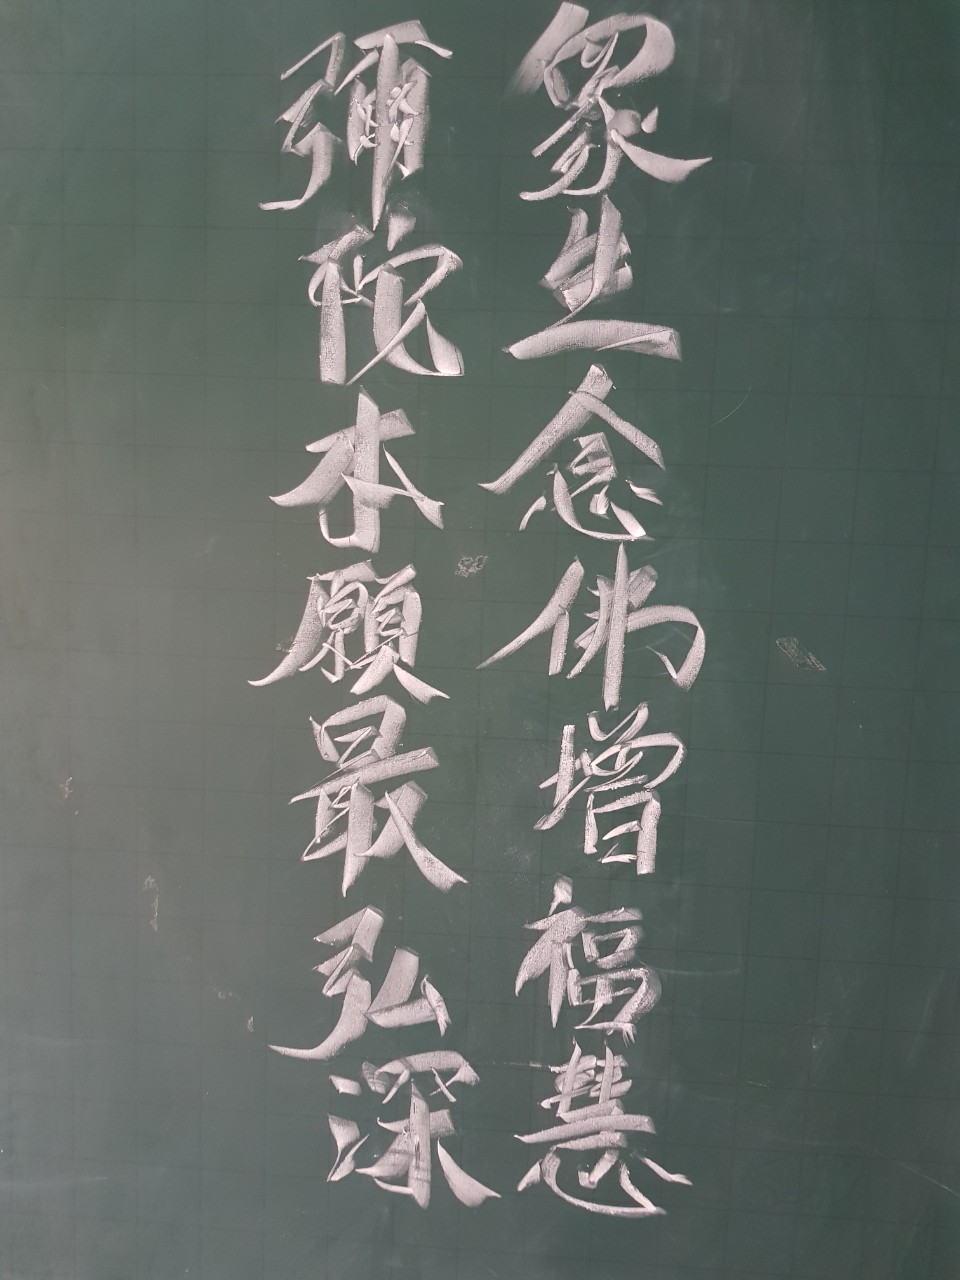 眾生念佛增福慧
彌陀本願最弘深